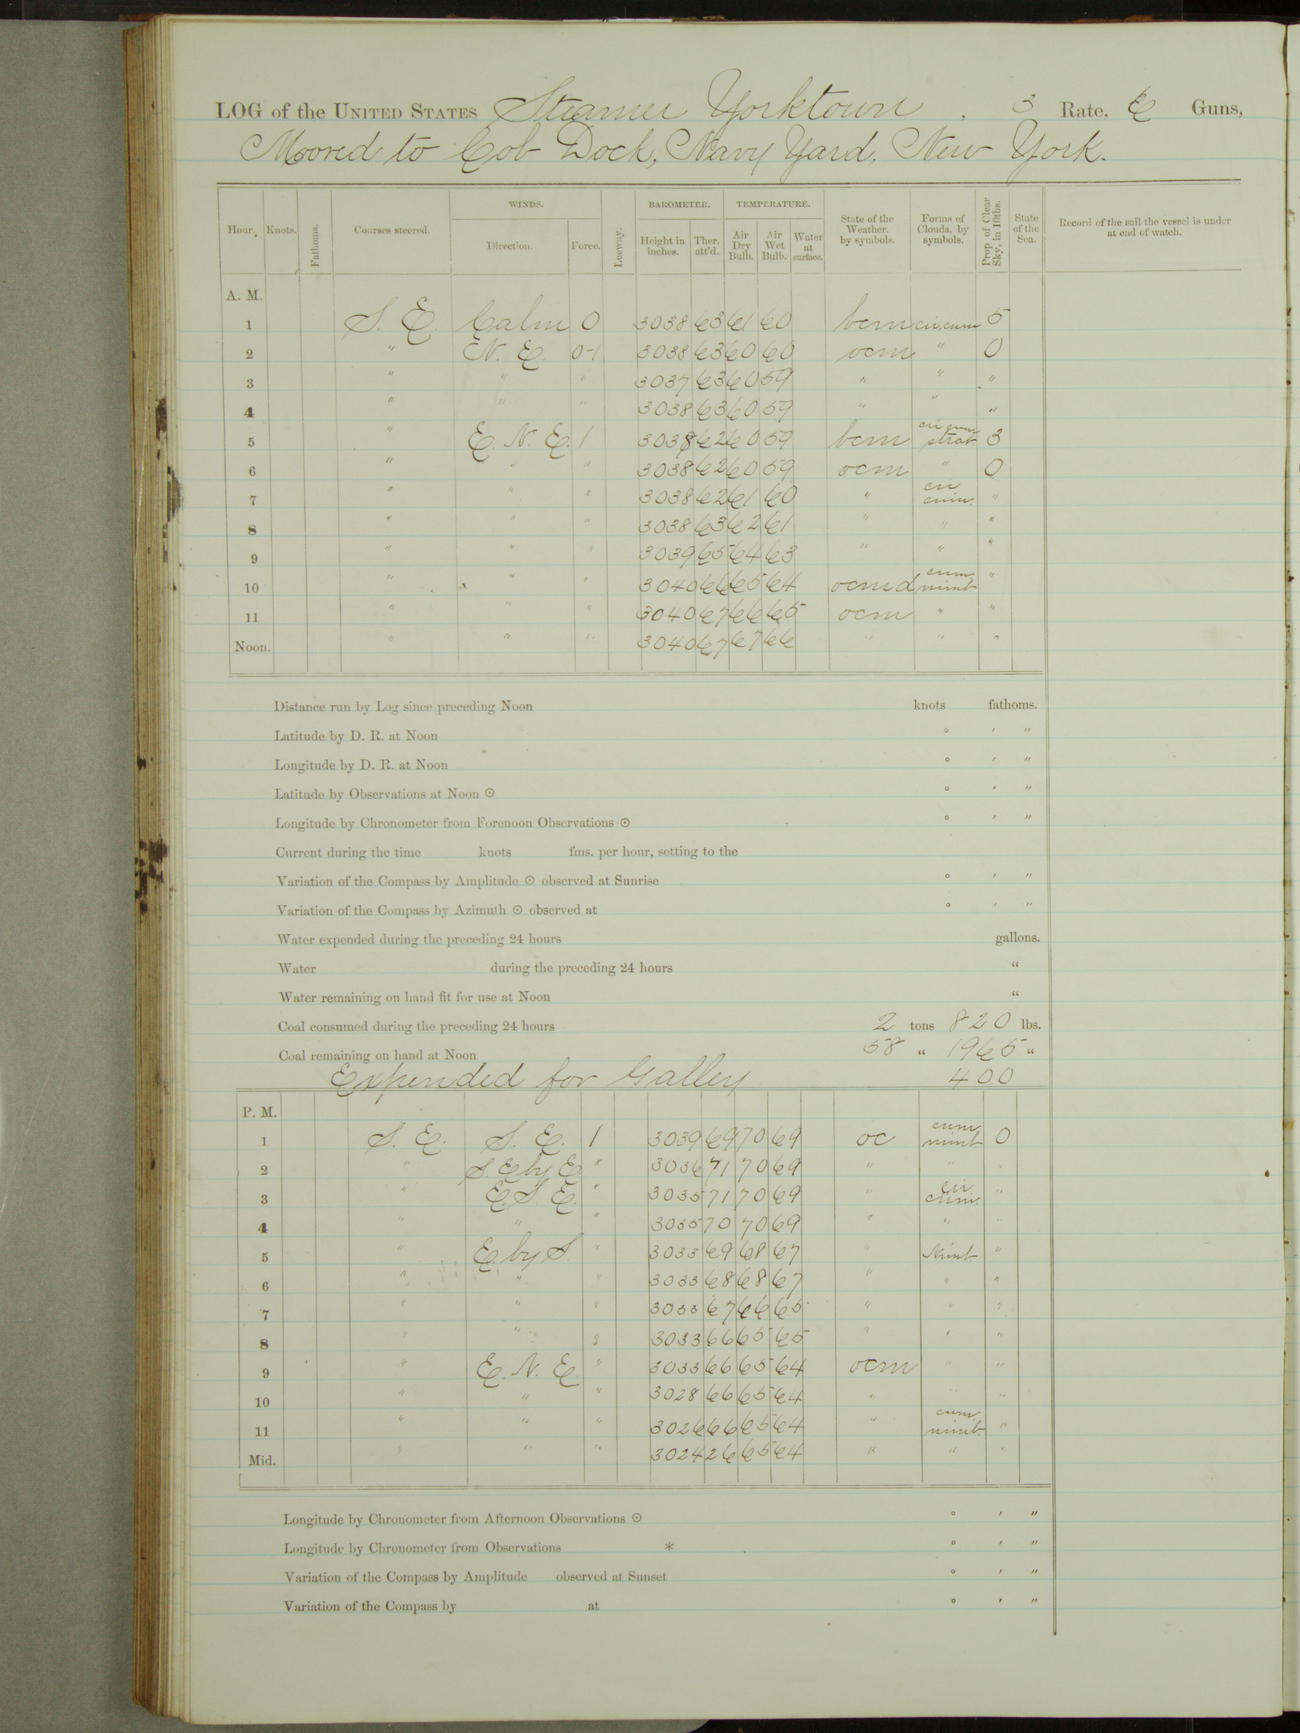 LOG of the UNITED STATES Steamer Yorktown . 3 Rate, 6 Guns,
Moored to Cob Dock, Navy Yard, New York.
WINDS. BAROMETER. TEMPERATURE.
Hour. Knots. Fathoms. Courses steered. Direction. Force. Leeway. Height in inches. Ther. att'd. Air Dry Bulb. Air Wet Bulb. Water at surface. State of the Weather, by symbols. Forms of Clouds, by symbols. Prop of Clear Sky, in 10ths. State of the Sea. Record of the sail the vessel is under at end of watch.
A. M.
1 S. E. Calm 0 3038 63 61 60 bcm cir.cum 5
2 " N. E. 0-1 3038 63 60 60 ocm " 0
3 " " " 3037 63 60 59 " " "
4 " " " 3038 63 60 59 " " "
5 " E. N. E. 1 3038 62 60 59 bcm cir cum strat 3
6 " " " 3038 62 60 59 ocm " 0
7 " " " 3038 62 61 60 " cir cum. "
8 " " " 3038 63 62 61 " " "
9 " " " 3039 65 64 63 " " "
10 " " " 3040 66 65 64 ocmd cum nimb "
11 " " " 3040 67 66 65 ocm " "
Noon. " " " 3040 67 67 66 " " "
Distance run by Log since preceding Noon knots fathoms.
Latitude by D. R. at Noon ° ' "
Longitude by D. R. at Noon ° ' "
Latitude by Observations at Noon ☉ ° ' "
Longitude by Chronometer from Forenoon Observations ☉ ° ' "
Current during the time knots fms. per hour, setting to the
Variation of the Compass by Amplitude ☉ observed at Sunrise ° ' "
Variation of the Compass by Azimuth ☉ observed at ° ' "
Water expended during the preceding 24 hours gallons.
Water during the preceding 24 hours "
Water remaining on hand fit for use at Noon "
Coal consumed during the preceding 24 hours 2 tons 820 lbs.
Coal remaining on hand at Noon 58 " 1965 "
Expended for Galley 400
P. M.
1 S. E. S. E. 1 3039 69 70 69 oc cum nimb 0
2 " S. E by E " 3036 71 70 69 " " "
3 " E S E. " 3035 71 70 69 " cir cum. "
4 " " " 3035 70 70 69 " " "
5 " E by S. " 3033 69 68 67 " Nimb "
6 " " " 3033 68 68 67 " " "
7 " " " 3033 67 66 65 " " "
8 " " " 3033 66 65 65 " " "
9 " E. N. E " 3033 66 65 64 ocm " "
10 " " " 3028 66 65 64 " " "
11 " " " 3026 66 65 64 " cum nimb "
Mid. " " " 3024 26 65 64 " " "
Longitude by Chronometer from Afternoon Observations ☉ ° ' "
Longitude by Chronometer from Observations * ° ' "
Variation of the Compass by Amplitude observed at Sunset ° ' "
Variation of the Compass by at ° ' "